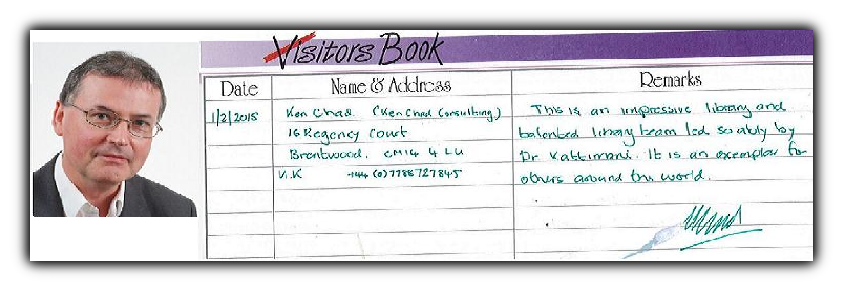 Visitors Book
Date Name & Address Remarks
1/2/2015 Ken Chad (Ken Chad Consulting) This is an impressive library and
16 Regency Court talented library team led so ably by
Brentwood. CM14 4LU Dr Kattimani. It is an exemplar for
U.K +44 (0)7788727845 others around the world.